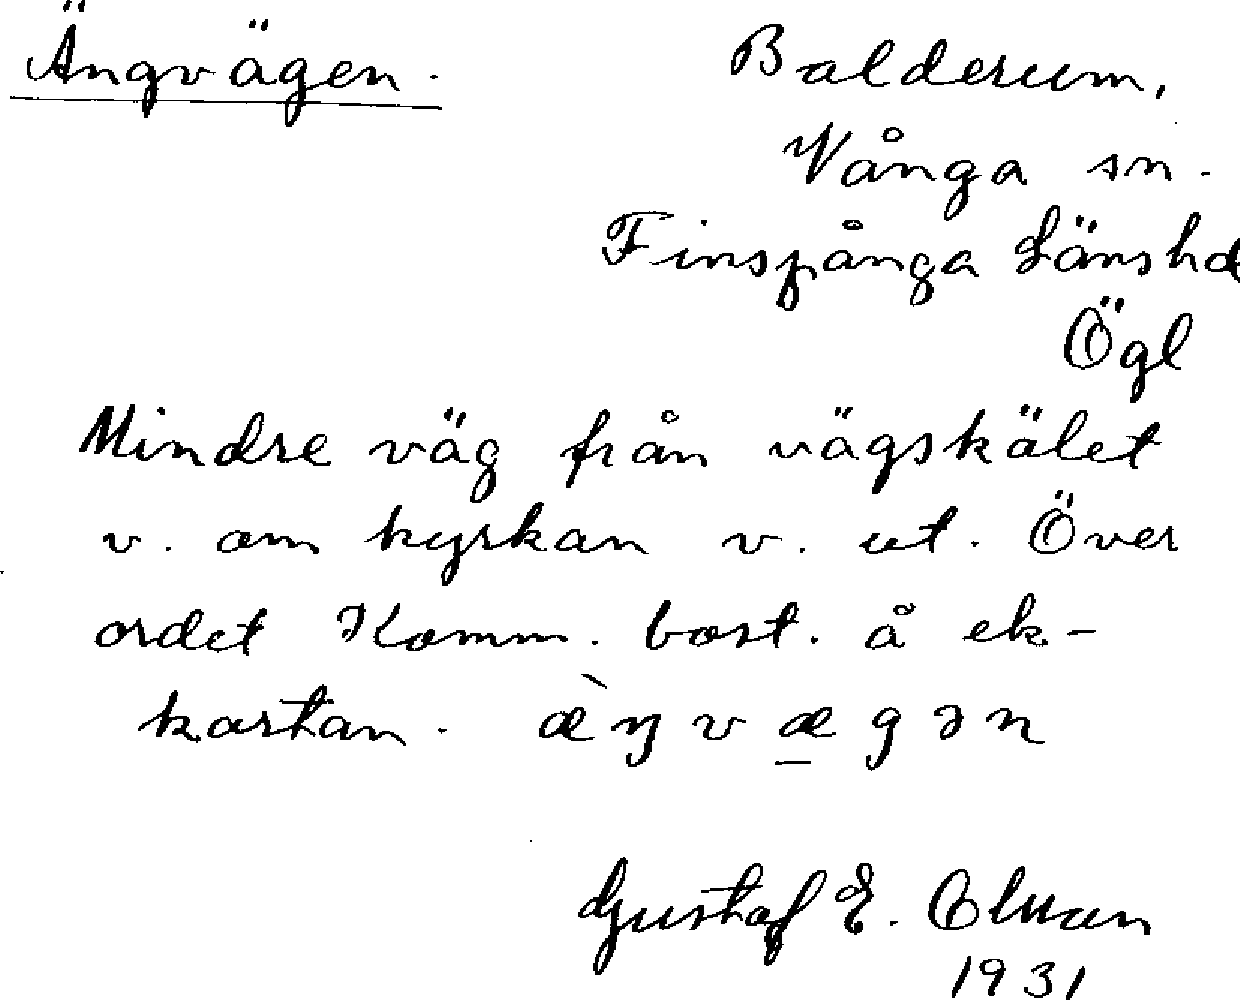 Ängvägen.
Balderum,
Vånga sn.
Finspånga Länshd
Ögl
Mindre väg från vägskälet
v. om kyrkan v. ut. Över
ordet Komm. bost. å ek-
kartan. æ̀ŋvæ̱gən
Gustaf E. Olman
1931